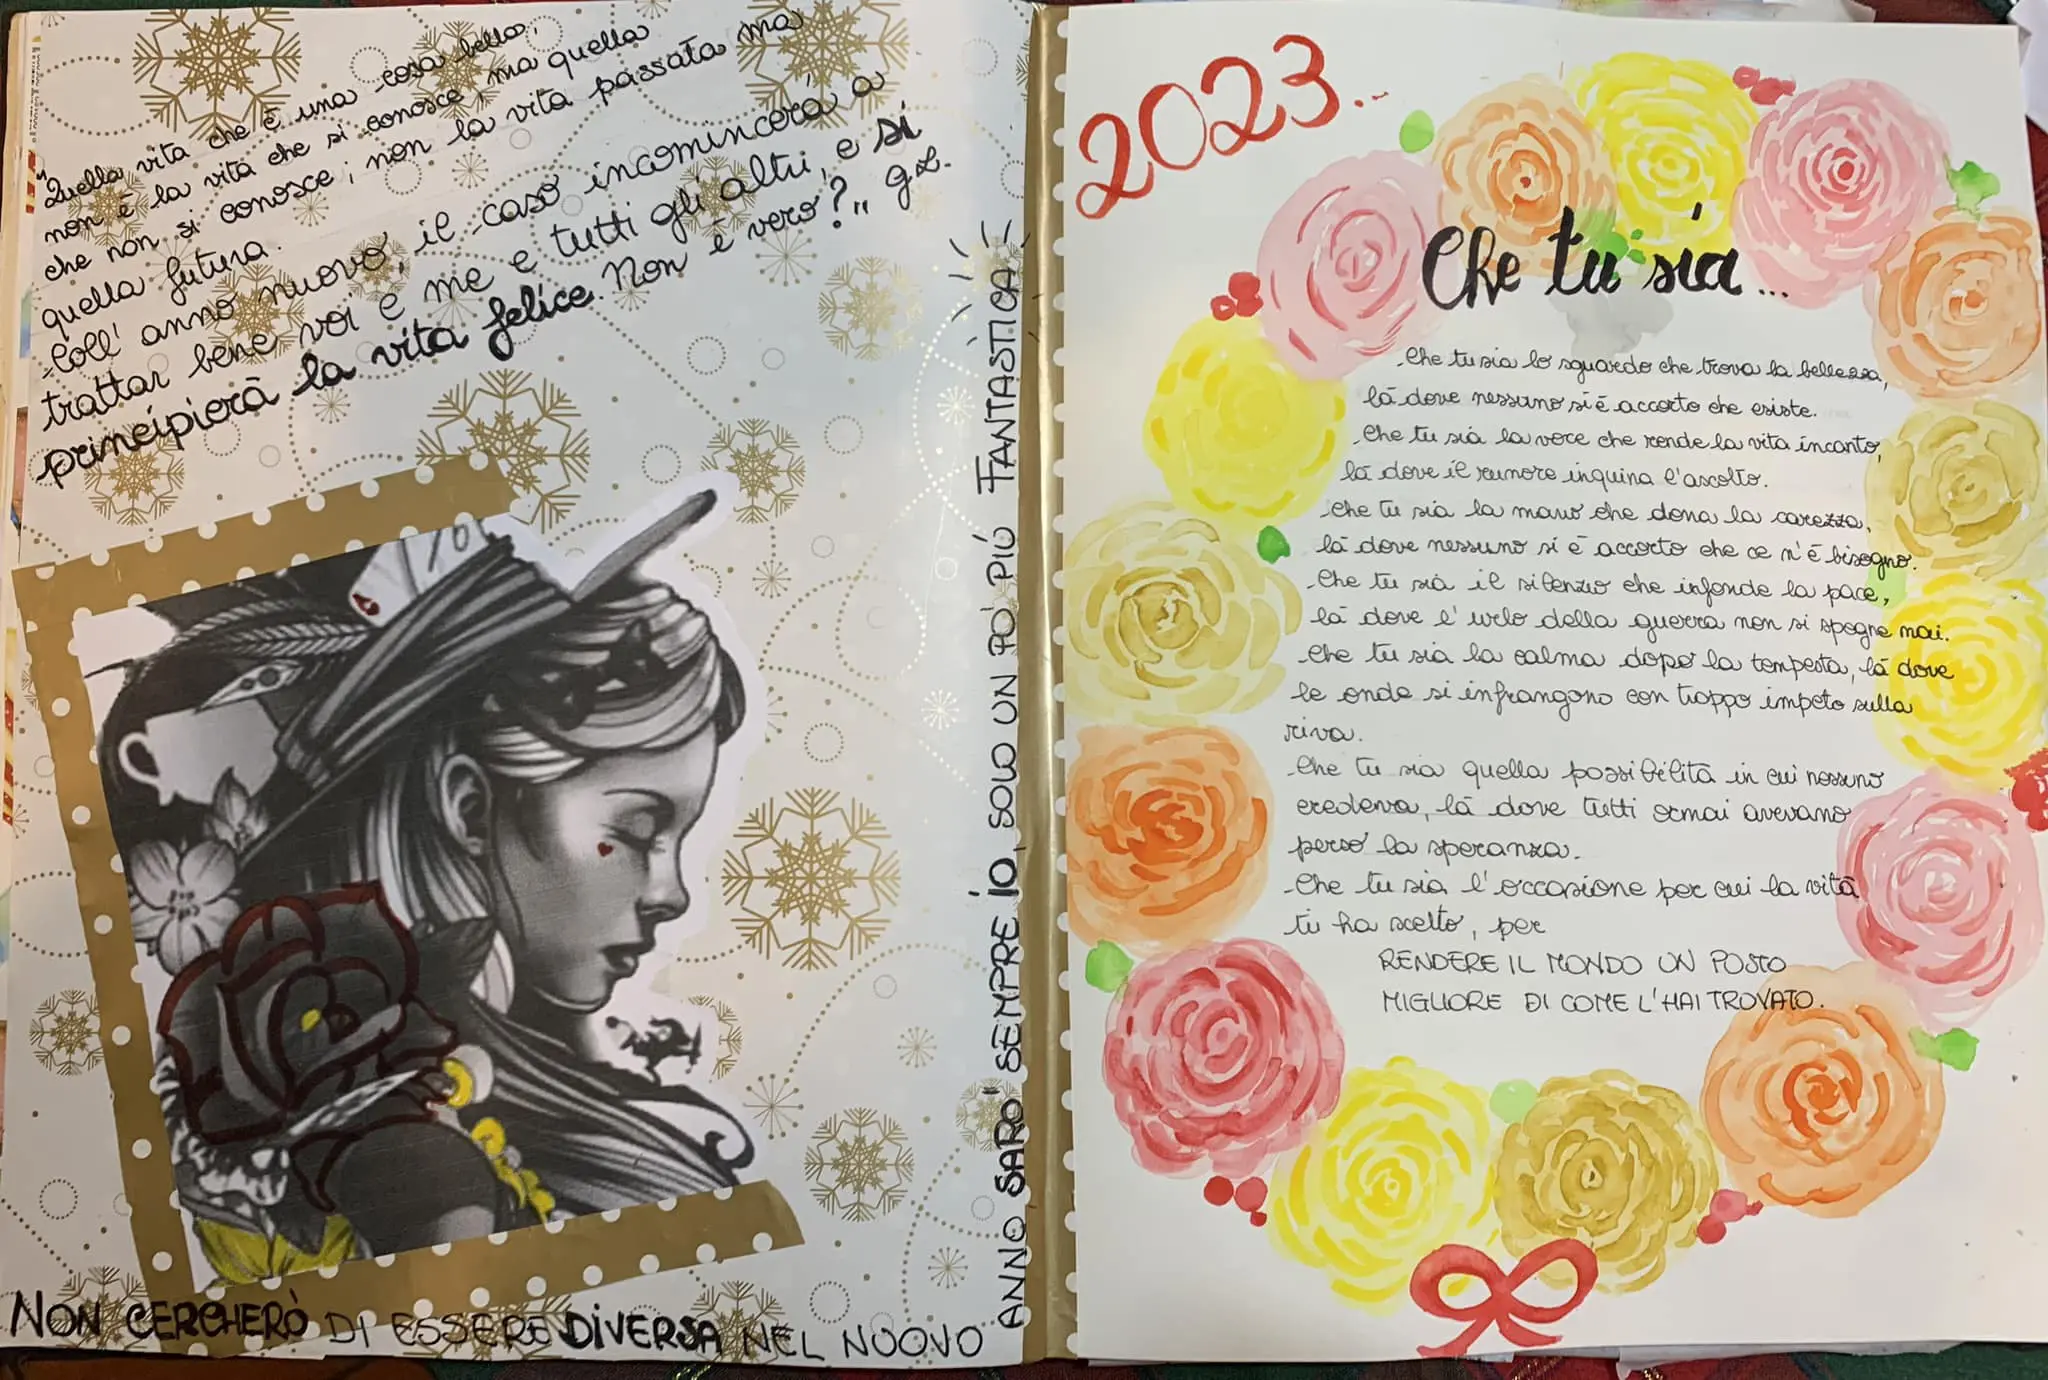 "Quella vita che è una cosa bella,
non è la vita che si conosce, ma quella
che non si conosce; non la vita passata ma
quella futura.
Coll' anno nuovo, il caso incomincerà a
trattar bene voi e me e tutti gli altri, e si
principierà la vita felice. Non è vero?" g.L.
NON CERCHERÒ DI ESSERE DIVERSA NEL NUOVO
ANNO SARO' SEMPRE IO, SOLO UN PO' PIÙ FANTASTICA
2023...
Che tu sia...
Che tu sia lo sguardo che trova la bellezza,
là dove nessuno si è accorto che esiste.
Che tu sia la voce che rende la vita incanto,
là dove il rumore inquina l'ascolto.
Che tu sia la mano che dona la carezza,
là dove nessuno si è accorto che ce n'è bisogno.
Che tu sia il silenzio che infonde la pace,
là dove l'urlo della guerra non si spegne mai.
Che tu sia la calma dopo la tempesta, là dove
le onde si infrangono con troppo impeto sulla
riva.
Che tu sia quella possibilità in cui nessuno
credeva, là dove tutti ormai avevano
perso la speranza.
Che tu sia l'occasione per cui la vita
ti ha scelto, per
RENDERE IL MONDO UN POSTO
MIGLIORE DI COME L'HAI TROVATO.